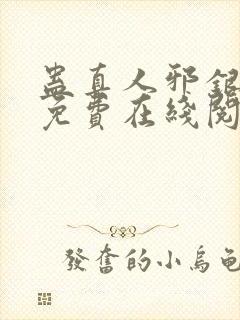 蛊真人邪銀
免費在綫閱
發奮的小烏龜